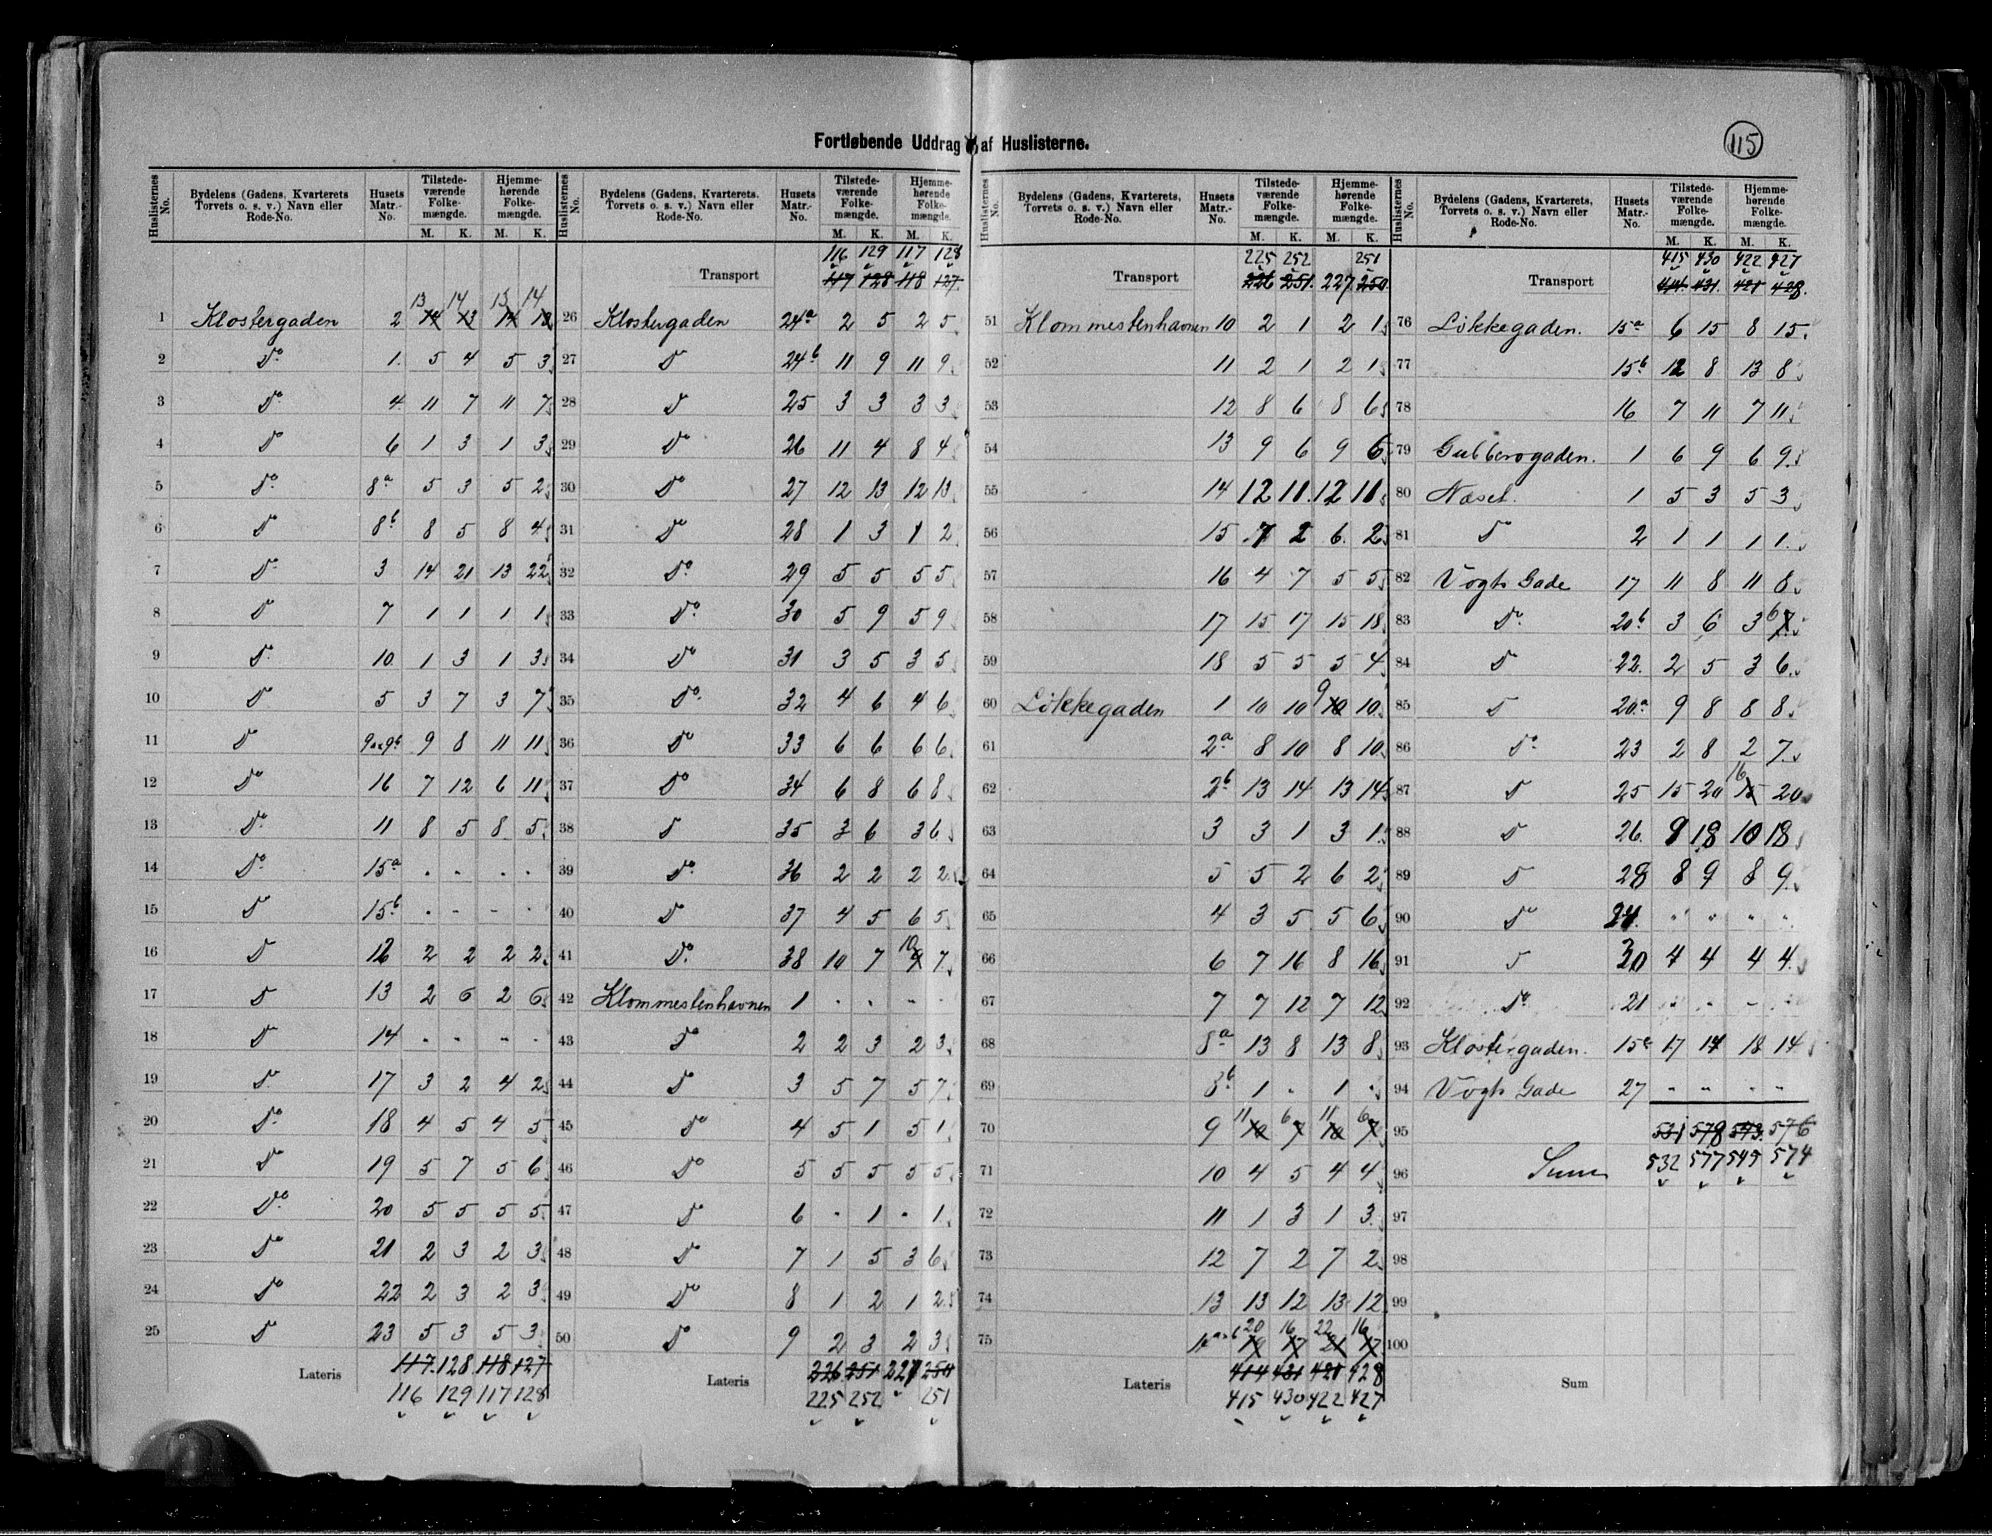 115
Fortløbende Uddrag af Huslisterne.
Huslisternes No. Bydelens (Gadens, Kvarterets Torvets o. s. v.) Navn eller Rode-No. Husets Matr.-No. Tilstedeværende Folkemængde. M. K. Hjemmehørende Folkemængde. M. K.
13 14 13 14
1 Klostergaden 2 14 13 14 13
2 Do 1. 5 4 5 3
3 Do 4. 11 7 11 7
4 Do 6 1 3 1 3
5 Do 8a 5 3 5 2
6 Do 8b 8 5 8 4
7 Do 3 14 21 13 22
8 Do 7 1 1 1 1
9 Do 10 1 3 1 3
10 Do 5 3 7 3 7
11 Do 9a&9b 9 8 11 11
12 Do 16 7 12 6 11
13 Do 11 8 5 8 5
14 Do 15a . . . .
15 Do 15b . - - .
16 Do 12 2 2 2 2
17 Do 13 2 6 2 6
18 Do 14 . . . .
19 Do 17 3 2 4 2
20 Do 18 4 5 4 5
21 Do 19 5 7 5 6
22 Do 20 5 5 5 5
23 Do 21 2 3 2 3
24 Do 22 2 3 2 3
25 Do 23 5 3 5 3
Lateris 117 128 118 127
116 129 117 128
Huslisternes No. Bydelens (Gadens, Kvarterets. Torvets o. s. v.) Navn eller Rode-No. Husets Matr.-No. Tilstedeværende Folkemængde. M. K. Hjemmehørende Folkemængde. M. K.
116 129 117 128
Transport 117 128 118 127
26 Klostergaden 24a 2 5 2 5
27 Do 24b 11 9 11 9
28 Do 25 3 3 3 3
29 Do 26 11 4 8 4
30 Do 27 12 13 12 13
31 Do 28 1 3 1 2
32 Do 29 5 5 5 5
33 Do 30 5 9 5 9
34 Do 31 3 5 3 5
35 Do 32 4 6 4 6
36 Do 33 6 6 6 6
37 Do 34 6 8 6 8
38 Do 35 3 6 3 6
39 Do 36 2 2 2 2
40 Do 37 4 5 6 5
41 Do 38 10 7 10 9 7
42 Klommestenhavnen 1 . . . .
43 Do 2 2 3 2 3
44 Do 3 5 7 5 7
45 Do 4 5 1 5 1
46 Do 5 5 5 5 5
47 Do 6 . 1 . 1
48 Do 7 1 5 3 6
49 Do 8 1 2 1 2
50 Do 9 2 3 2 3
Lateris 226 251 227 250
225 252 251
Huslisternes No. Bydelens (Gadens, Kvarterets Torvets o. s. v.) Navn eller Rode-No. Husets Matr.-No. Tilstedeværende Folkemængde. M. K. Hjemmehørende Folkemængde. M. K.
225 252 251
Transport 226 251 227 250
51 Klommestenhavnen 10 2 1 2 1
52 11 2 1 2 1
53 12 8 6 8 6
54 13 9 6 9 6
55 14 12 11 12 11
56 15 7 2 6 2
57 16 4 7 5 5
58 17 15 17 15 18
59 18 5 5 5 4
60 Løkkegaden 1 10 10 9 10 10
61 2a 8 10 8 10
62 2b 13 14 13 14
63 3 3 1 3 1
64 5 5 2 6 2
65 4 3 5 5 6
66 6 7 16 8 16
67 7 7 12 7 12
68 8a 13 8 13 8
69 8b 1 . 1 .
11 6 11 6
70 9 10 7 10 7
71 10 4 5 4 4
72 11 1 3 1 3
73 12 7 2 7 2
74 13 13 12 13 12
20 16 22 16
75 19 17 21 17
Lateris 414 431 421 428
415 430 422 427
Huslisternes No. Bydelens (Gadens, Kvarterets, Torvets o. s. v.) Navn eller Rode-No. Husets Matr.-No. Tilstedeværende Folkemængde. M. K. Hjemmehørende Folkemængde. M. K.
415 430 422 427
Transport 414 431 421 428
76 Løkkegaden. 15a 6 15 8 15
77 15b 12 8 13 8
78 16 7 11 7 11
79 Gubberogaden. 1 6 9 6 9
80 Næset. 1 5 3 5 3
81 Do 2 1 1 1 1
82 Vogts Gade 17 11 8 11 8
83 Do 20b 3 6 3 6 7
84 Do 22. 2 5 3 6
85 Do 20a 9 8 8 8
86 Do 23 2 8 2 7
87 Do 25 15 20 16 15 20
88 Do 26. 9 18 10 18
89 Do 28 8 9 8 9
90 Do 24. " " " "
91 Do 30 4 4 4 4
92 Do 21 . . . .
93 Klostergaden. 15c 17 14 18 14
94 Vogts Gade 27 " " " "
95 531 578 543 576
96 Sum 532 577 545 574
97
98
99
100
Sum